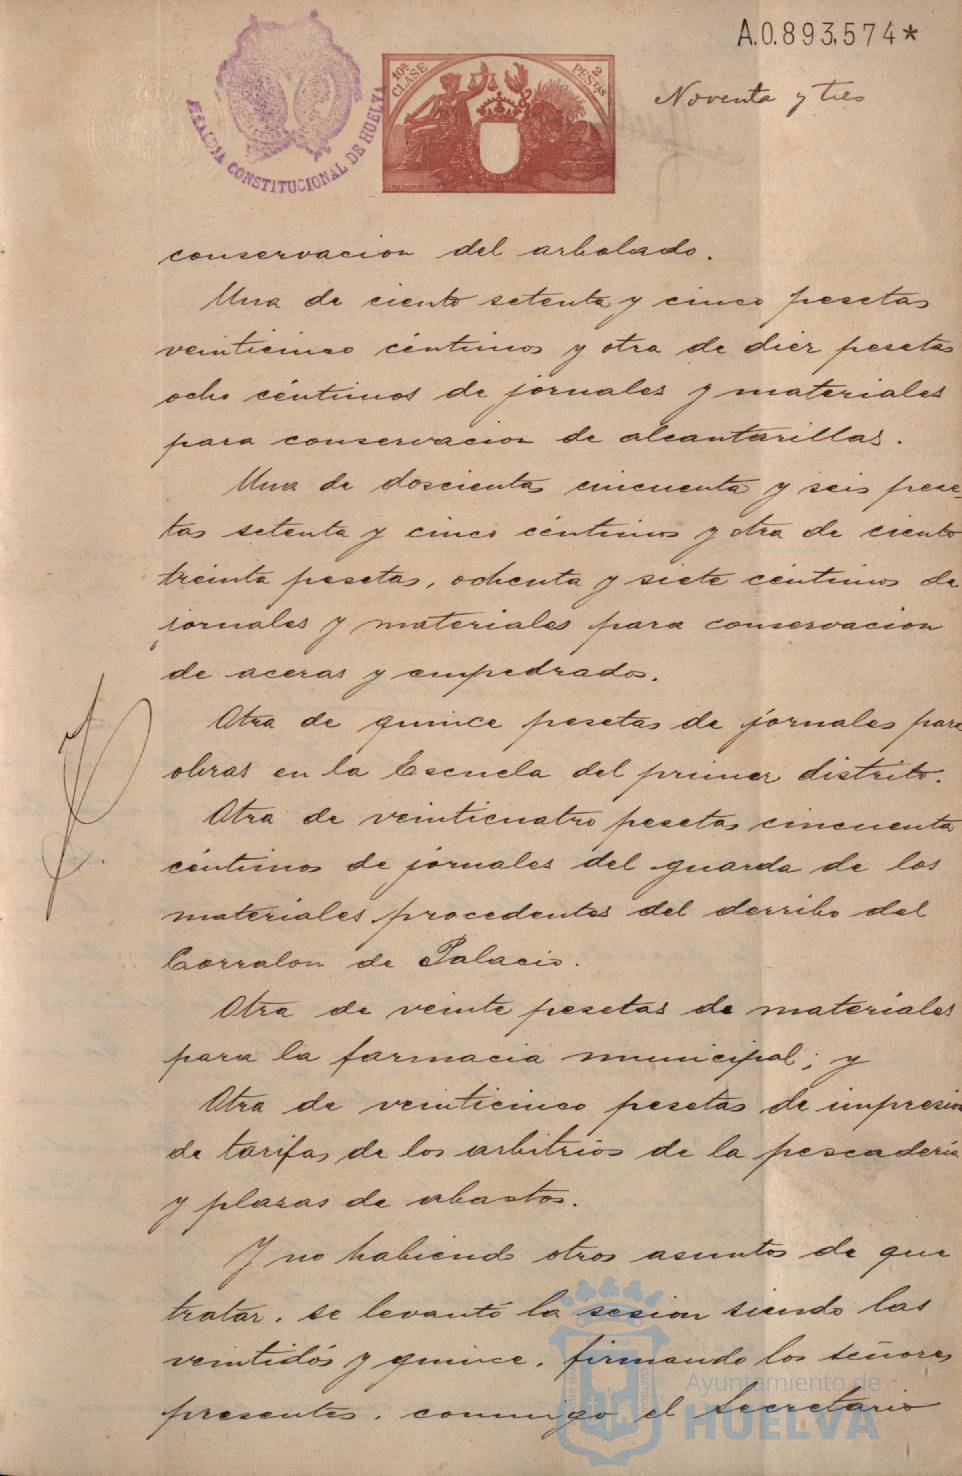 A.0.893,574*
10ª CLASE
2 PESTAS
ALCALDIA CONSTITUCIONAL DE HUELVA
Noventa y tres
conservacion del arbolado.
Una de ciento setenta y cinco pesetas
veinticinco céntimos y otra de diez pesetas
ocho céntimos de jornales y materiales
para conservacion de alcantarillas.
Una de doscientas cincuenta y seis pese-
tas setenta y cinco céntimos y otra de ciento
treinta pesetas, ochenta y siete céntimos de
jornales y materiales para conservacion
de aceras y empedrados.
Otra de quince pesetas de jornales para
obras en la Escuela del primer distrito.
Otra de veinticuatro pesetas cincuenta
céntimos de jornales del guarda de los
materiales procedentes del derribo del
Corralon de Palacio.
Otra de veinte pesetas de materiales
para la farmacia municipal; y
Otra de veinticinco pesetas de impresion
de tarifas de los arbitrios de la pescadería
y plazas de abastos.
Y no habiendo otros asuntos de que
tratar, se levantó la sesion siendo las
veintidós y quince, firmando los señores
presentes, conmigo el Secretario
Ayuntamiento de
HUELVA